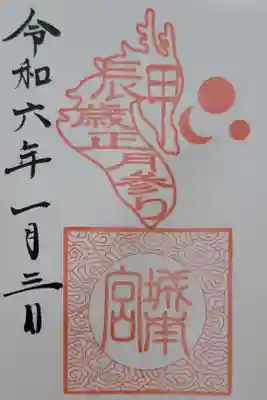 令和六年一月三日
甲
辰歳正月参り
城南宮